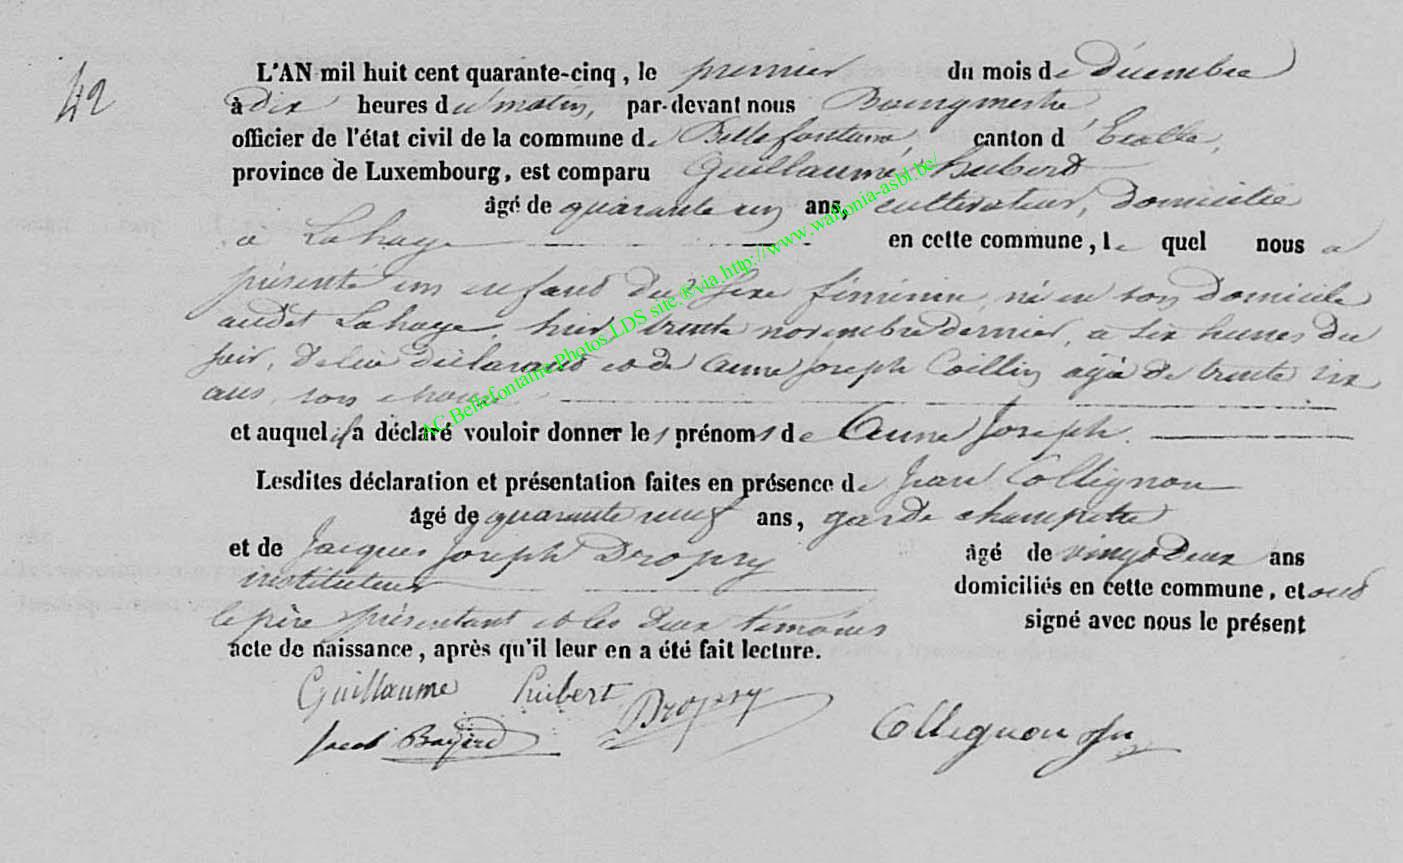 42
L'AN mil huit cent quarante-cinq, le premier du mois de Décembre
à dix heures du matin, par-devant nous Bourgmestre,
officier de l'état civil de la commune de Bellefontaine, canton d'Etalle,
province de Luxembourg, est comparu Guillaume Hubert
âgé de quarante un ans, cultivateur, domicilié
à Lahage en cette commune, lequel nous a
présenté un enfant du sexe féminin, né en son domicile
audit Lahage, hier trente novembre dernier, à six heures du
soir, de lui déclarant et de Anne Joseph Collin âgée de trente six
ans, son
et auquel il a déclaré vouloir donner les prénoms de Anne Joseph
Lesdites déclaration et présentation faites en présence de Jean Collignon
âgé de quarante neuf ans, garde champêtre
et de Jacques Joseph Dropsy âgé de vingt deux ans
instituteur domiciliés en cette commune, et ont
le père présentant et les deux témoins signé avec nous le présent
acte de naissance, après qu'il leur en a été fait lecture.
Guillaume Hubert Dropsy
Jacob Collignon
AC Bellefontaine Photos LDS site ®via http://www.wallonia-asbl.be/